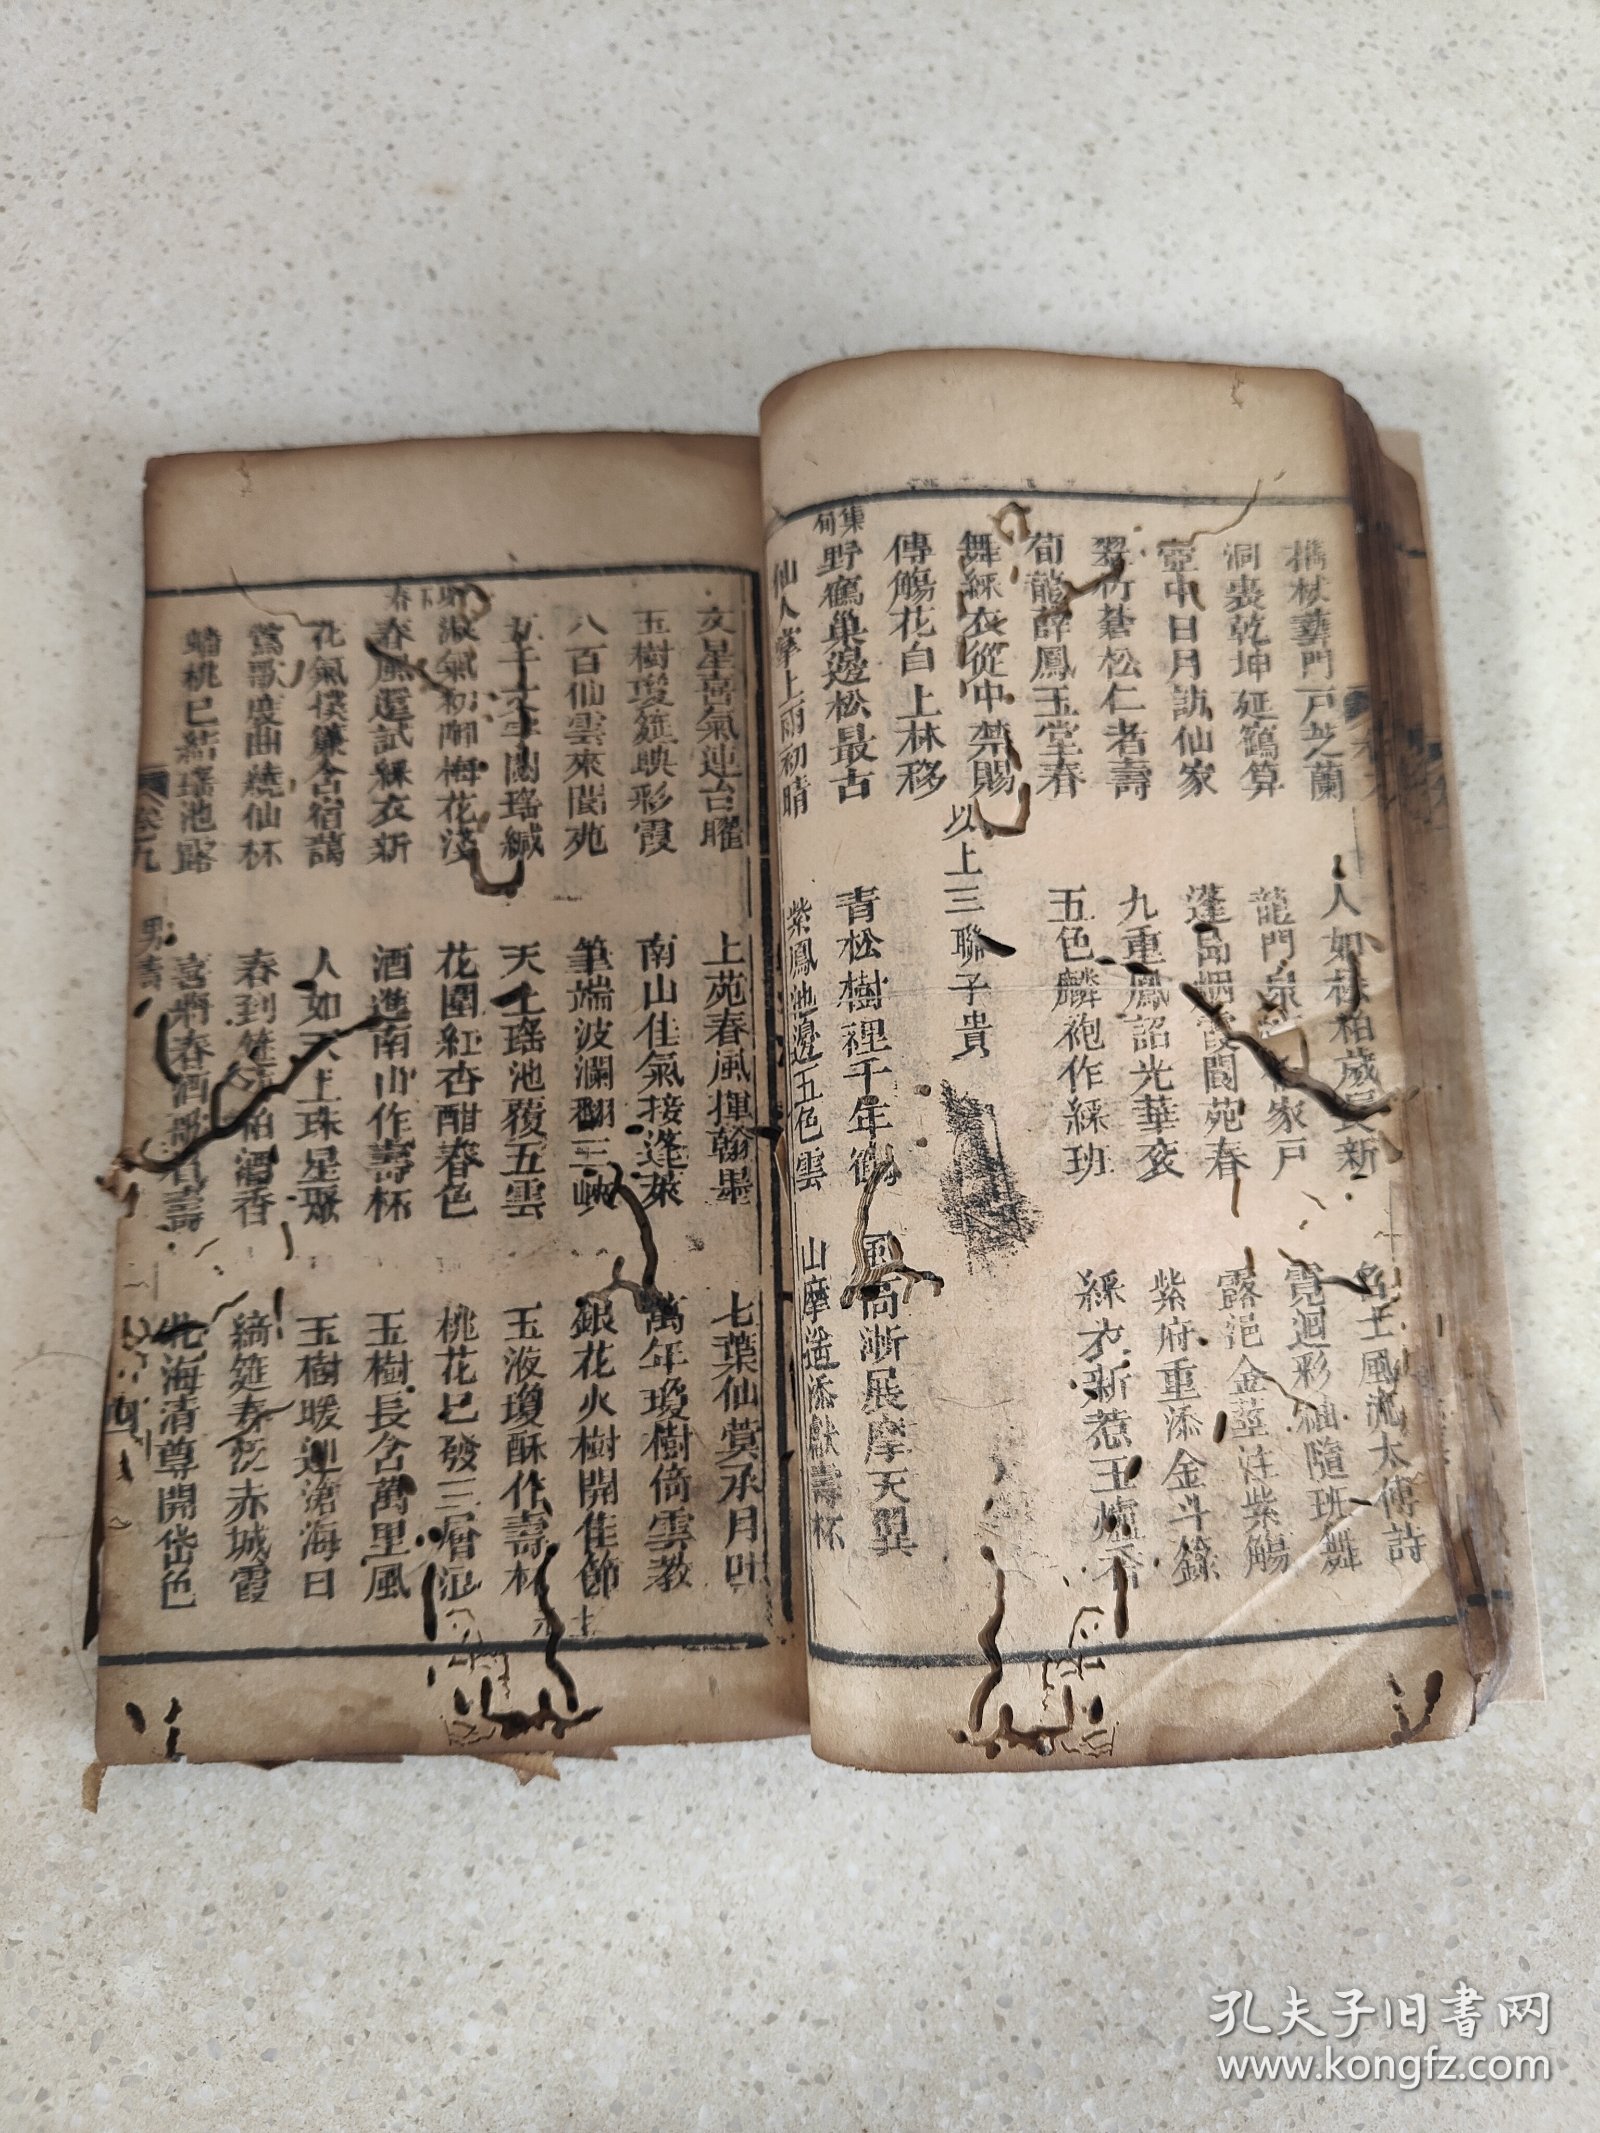 門戸芝蘭
人如
歲長新
名士風流太傅詩
洞裏乾坤延鶴算
龍門
家戸
彩袖隨班舞
壺中日月訪仙家
蓬島烟霞閬苑春
露浥金莖注紫觴
翠竹蒼松仁者壽
九重鳳詔光華袞
紫府重添金斗籙
荀龍薛鳳玉堂春
五色麟袍作綵班
綵衣新惹玉爐香
舞綵衣從中禁賜
以上三聯子貴
傳觴花自上林移
集句
野鶴巢邊松最古
青松樹裡千年鶴
風高漸展摩天翼
仙人掌上雨初晴
紫鳳池邊五色雲
山摩遥添獻壽杯
文星喜氣連台曜
上苑春風揮翰墨
七葉仙蓂承月
玉樹瓊筵映彩霞
南山佳氣接蓬萊
萬年瓊樹倚雲栽
八百仙雲來閬苑
筆端波瀾翻三峽
銀花火樹開佳節
上
瑶緘
天上瑶池覆五雲
玉液瓊酥作壽杯
元
淑氣初
梅花淺
花圍紅杏酣春色
桃花已發三層浪
春
春風還試綵衣新
酒進南山作壽杯
玉樹長含萬里風
花氣撲簾含宿靄
人如天上珠星聚
玉樹暖迎滄海日
鶯歌度曲繞仙杯
春到筵
柏酒香
綺筵春泛赤城霞
蟠桃已結瑶池露
喜
春酒
眉壽
北海清尊開岱色
卷九
男壽
孔夫子旧书网
www.kongfz.com